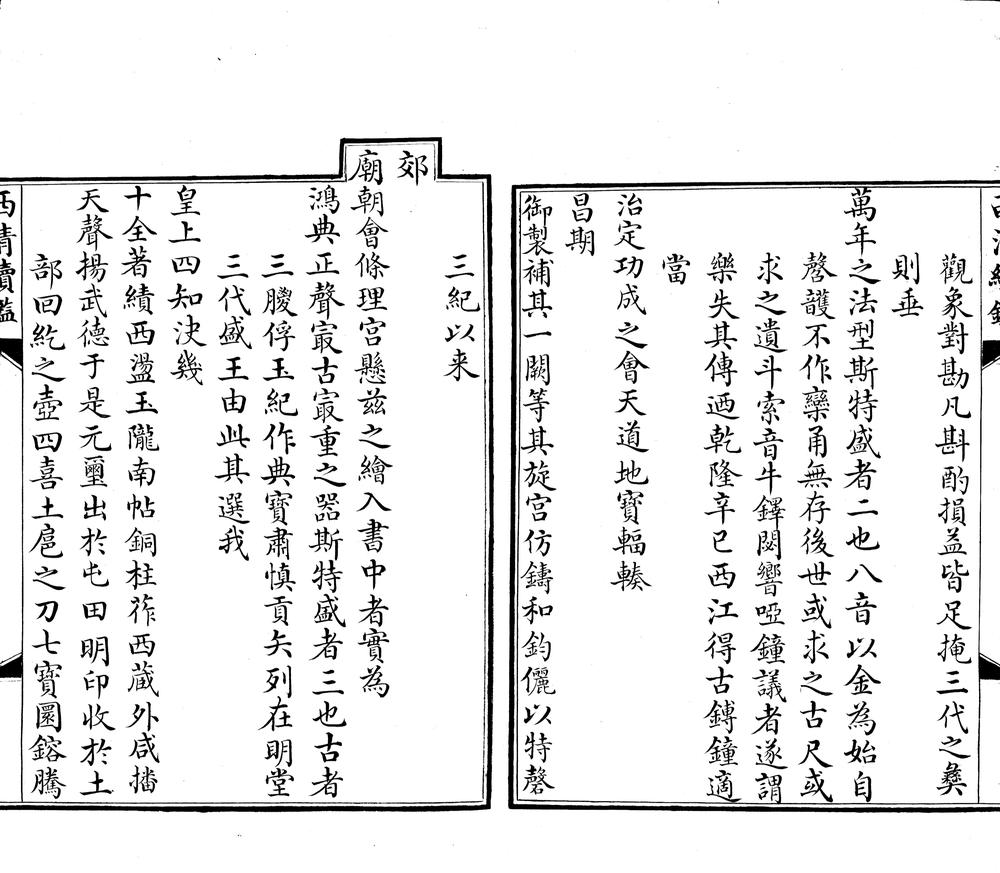 觀象對勘凡斟酌損益皆足掩三代之彝
則垂
萬年之法型斯特盛者二也八音以金為始自
謦頀不作欒甬無存後世或求之古尺或
求之遺斗索音牛鐸閟響啞鐘議者遂謂
樂失其傳迺乾隆辛巳西江得古鎛鐘適
當
治定功成之會天道地寶輻輳
昌期
御製補其一闕等其旋宮仿鑄和鈞儷以特磬
三紀以来
郊
廟朝會條理宮懸茲之繪入書中者實為
鴻典正聲㝡古㝡重之器斯特盛者三也古者
三朡俘玉紀作典寶肅慎貢矢列在明堂
三代盛王由此其選我
皇上四知決幾
十全著績西盪玉隴南帖銅柱莋西藏外咸播
天聲揚武德于是元璽出於屯田明印收於土
部回紇之壺四喜土扈之刀七寶圜鎔騰
西清續鑑